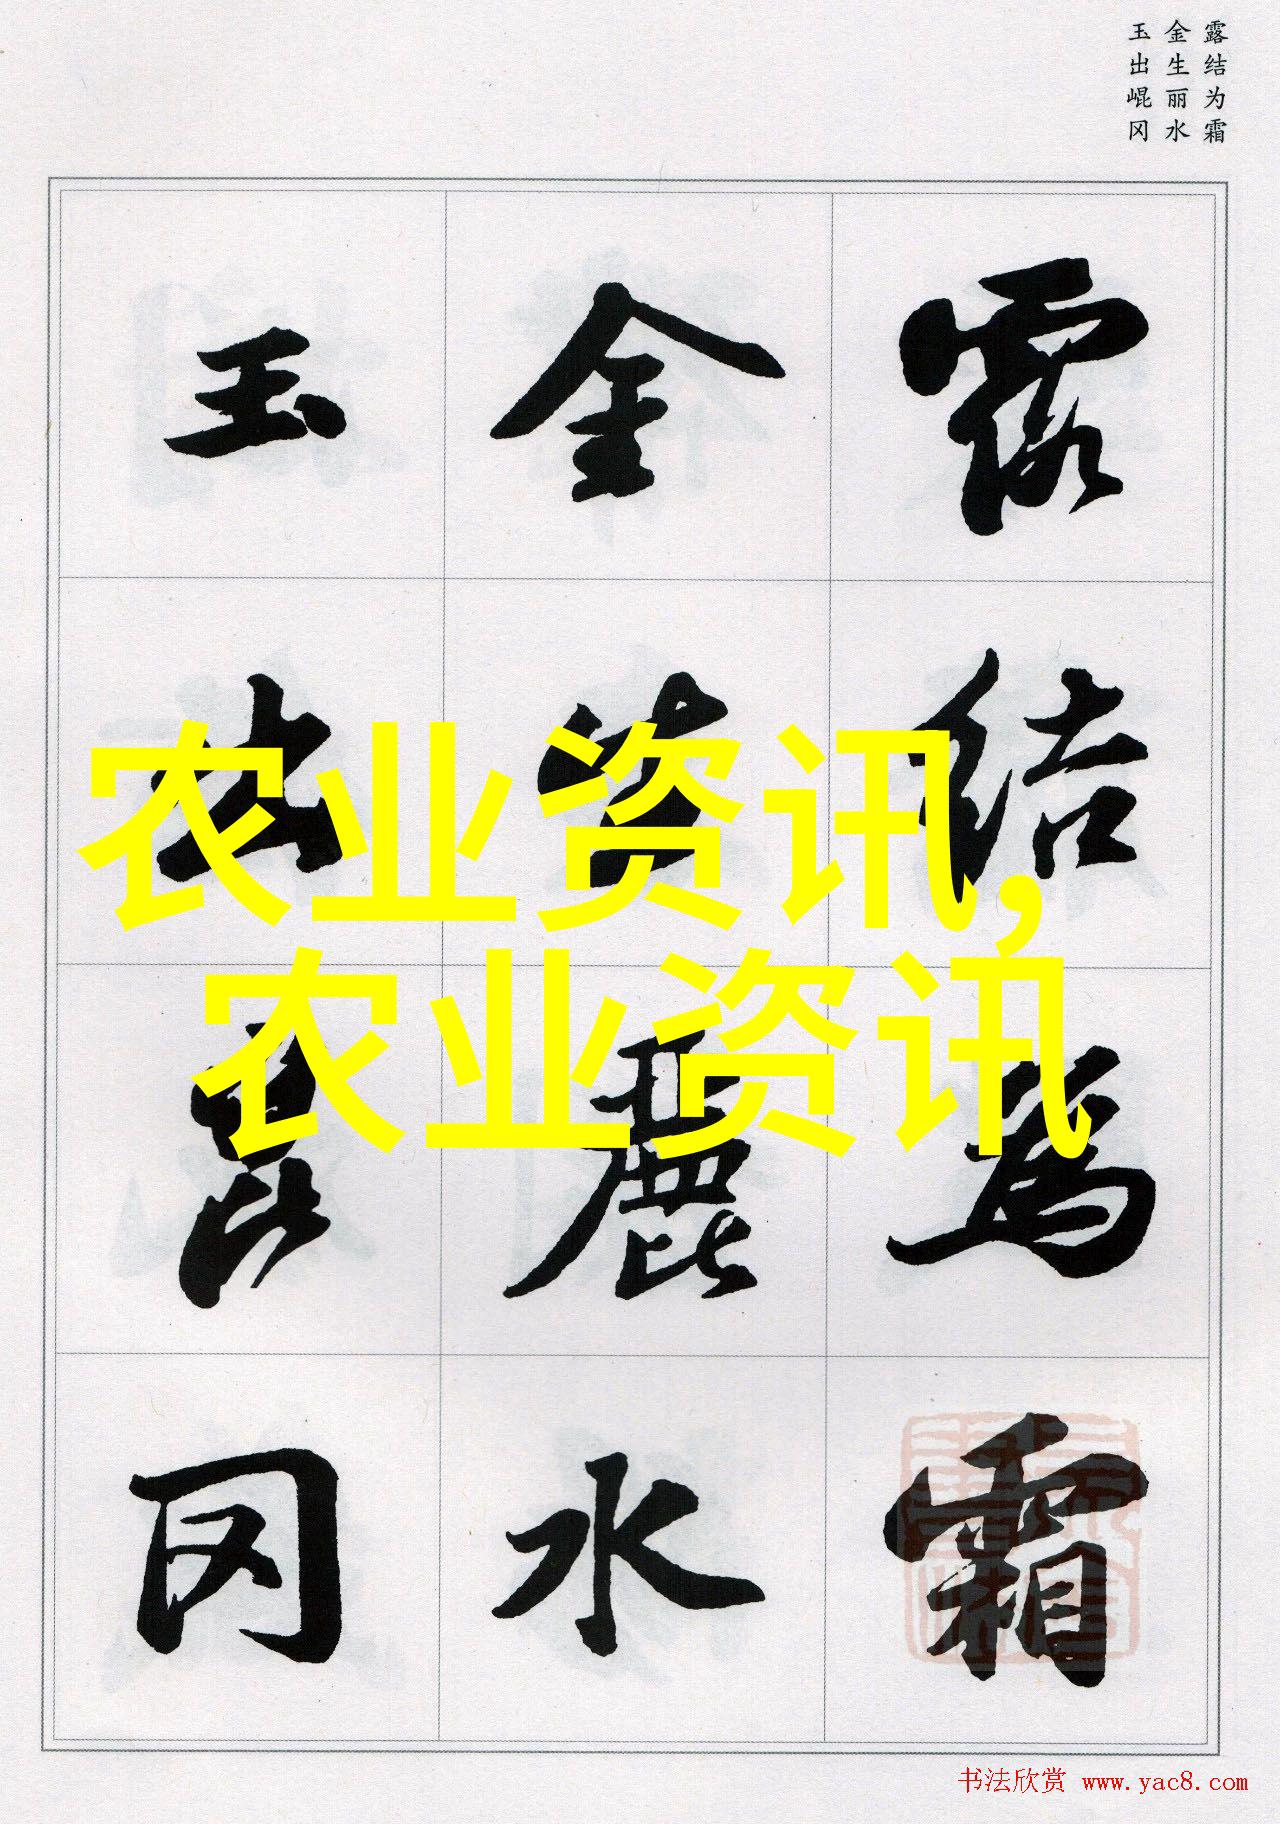 露结为霜
金生丽水
玉出崐冈
露結為霜
金生麗水
玉出崑冈
农业资讯,
农业资讯
书法欣赏 www.yac8.com